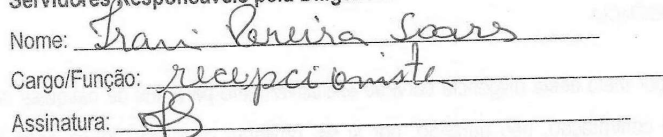 Servidores Responsáveis pela
Nome: Irani Pereira Soares
Cargo/Função: recepcioniste
Assinatura: